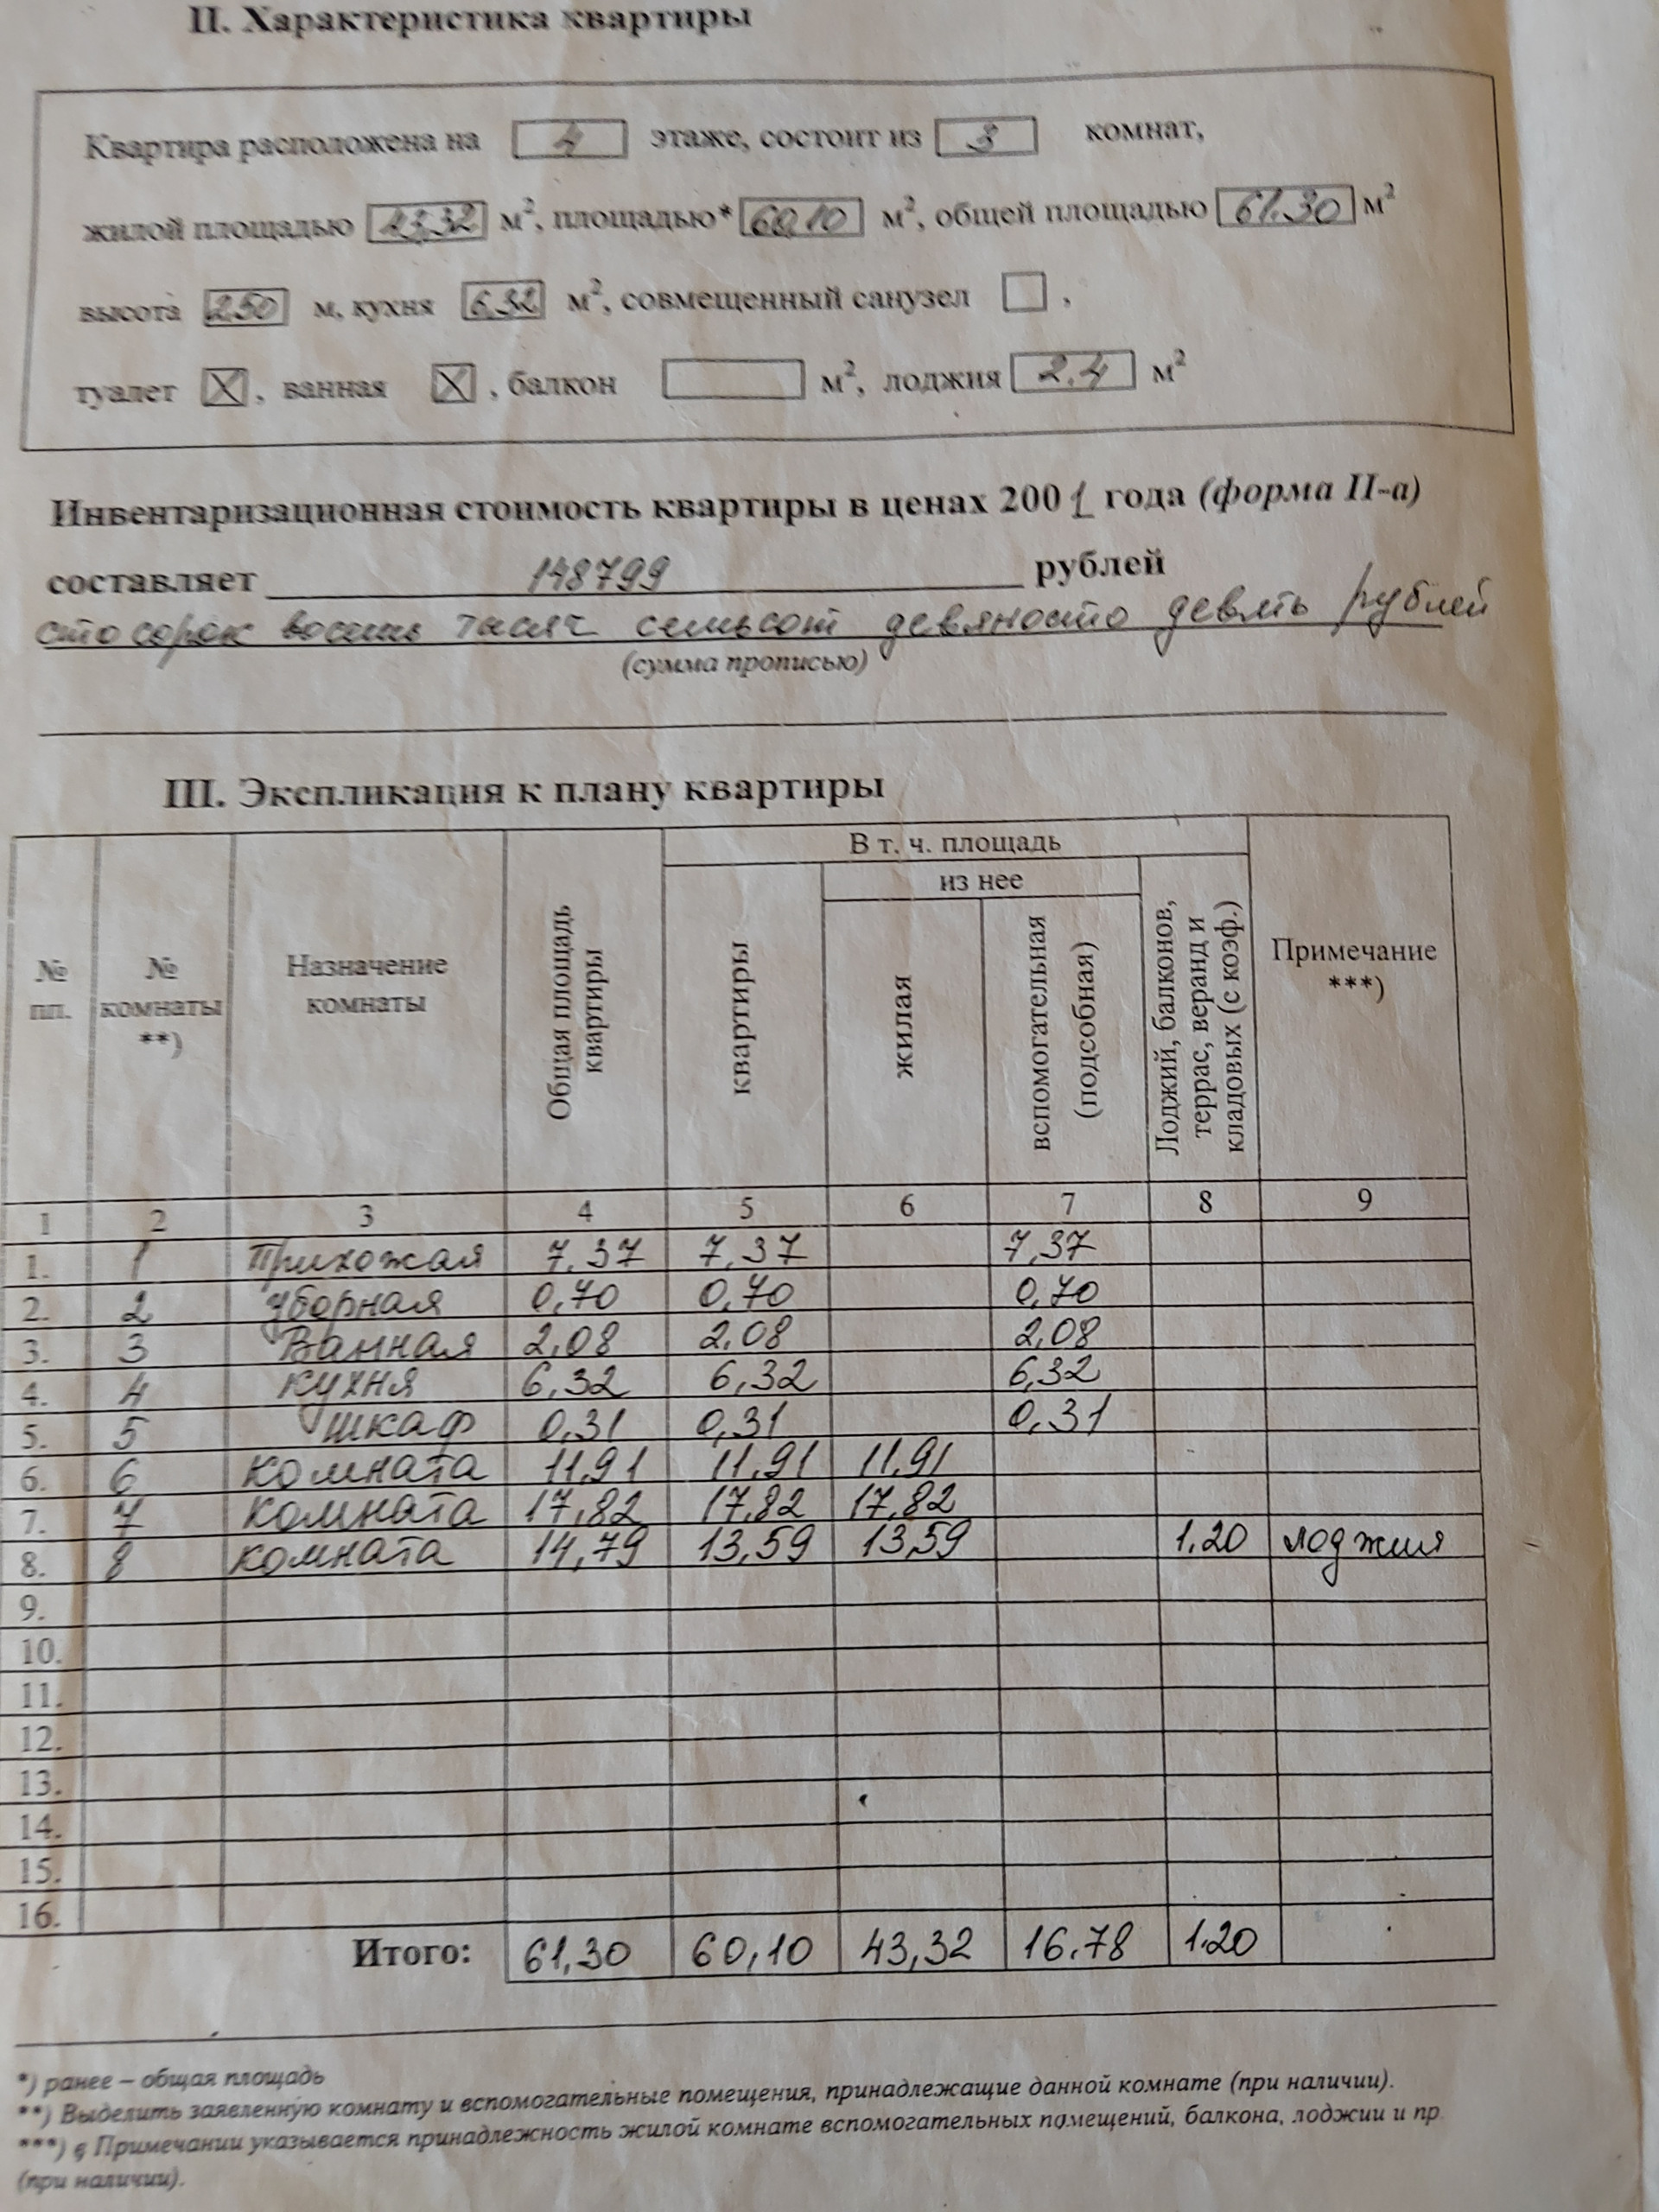 II. Характеристика квартиры
Квартира расположена на 4 этаже, состоит из 3 комнат,
жилой площадью 43,32 м², площадью* 60,10 м², общей площадью 61.30 м²
высота 2,50 м, кухня 6,32 м², совмещенный санузел ,
туалет X, ванная X, балкон м², лоджия 2.4 м²
Инвентаризационная стоимость квартиры в ценах 2001 года (форма II-а)
составляет 148799 рублей
сто сорок восемь тысяч семьсот девяносто девять рублей
(сумма прописью)
III. Экспликация к плану квартиры
№ пп.
№ комнаты **)
Назначение комнаты
Общая площадь квартиры
В т. ч. площадь
квартиры
из нее
жилая
вспомогательная (подсобная)
Лоджий, балконов, террас, веранд и кладовых (с коэф.)
Примечание ***)
1 2 3 4 5 6 7 8 9
1. 1 Прихожая 7,37 7,37 7,37
2. 2 уборная 0,70 0,70 0,70
3. 3 Ванная 2,08 2,08 2,08
4. 4 кухня 6,32 6,32 6,32
5. 5 шкаф 0,31 0,31 0,31
6. 6 комната 11,91 11,91 11,91
7. 7 комната 17,82 17,82 17,82
8. 8 комната 14,79 13,59 13,59 1.20 лоджия
9.
10.
11.
12.
13.
14.
15.
16.
Итого: 61,30 60,10 43,32 16.78 1.20
*) ранее – общая площадь
**) Выделить заявленную комнату и вспомогательные помещения, принадлежащие данной комнате (при наличии).
***) в Примечании указывается принадлежность жилой комнате вспомогательных помещений, балкона, лоджии и пр.
(при наличии).